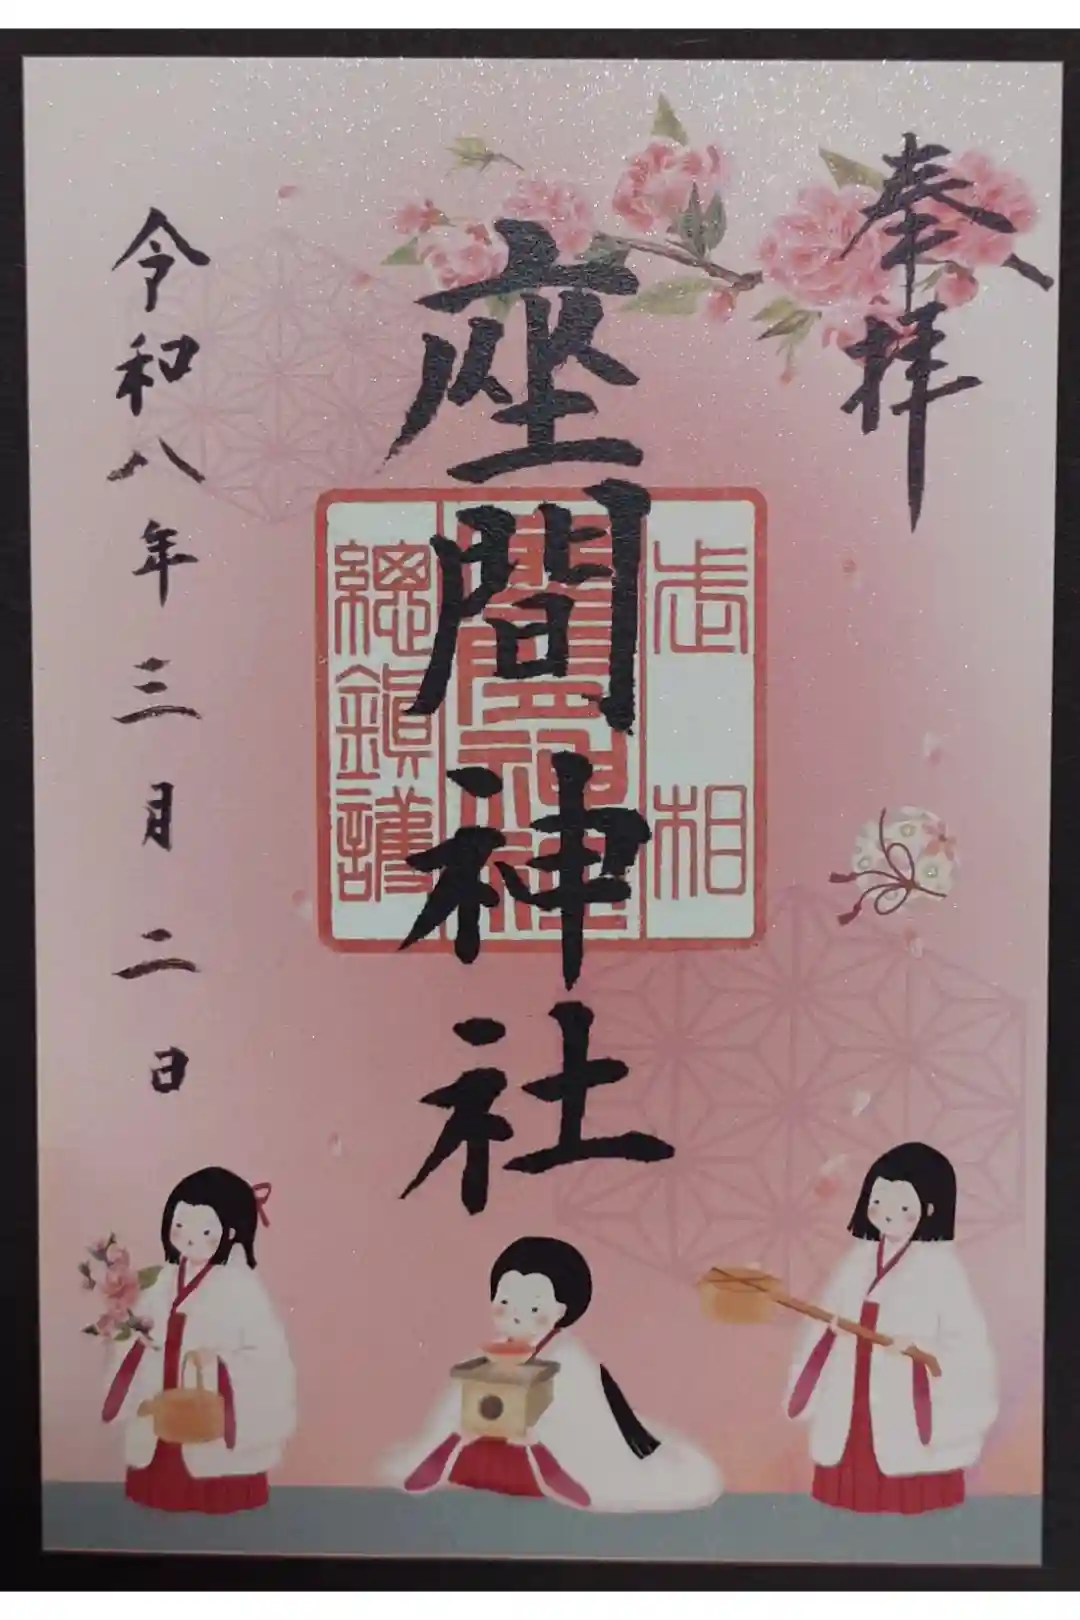 奉拝
相武
座間神社
座間神社
總鎮護
令和八年三月二日